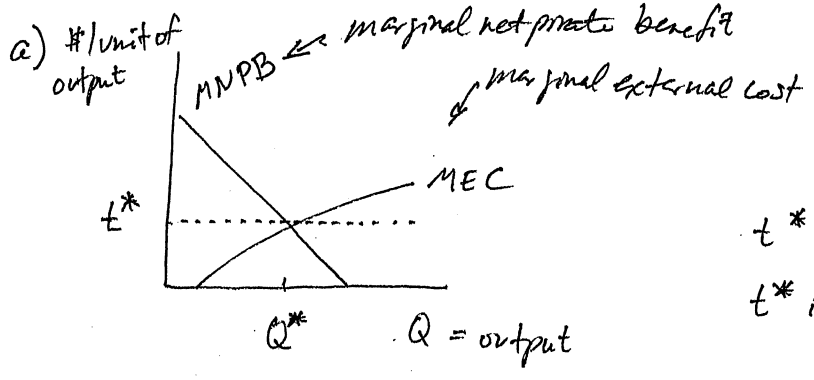 a) #/unit of
output
MNPB
marginal net private benefit
marginal external cost
MEC
t*
Q*
Q = output
t*
t*